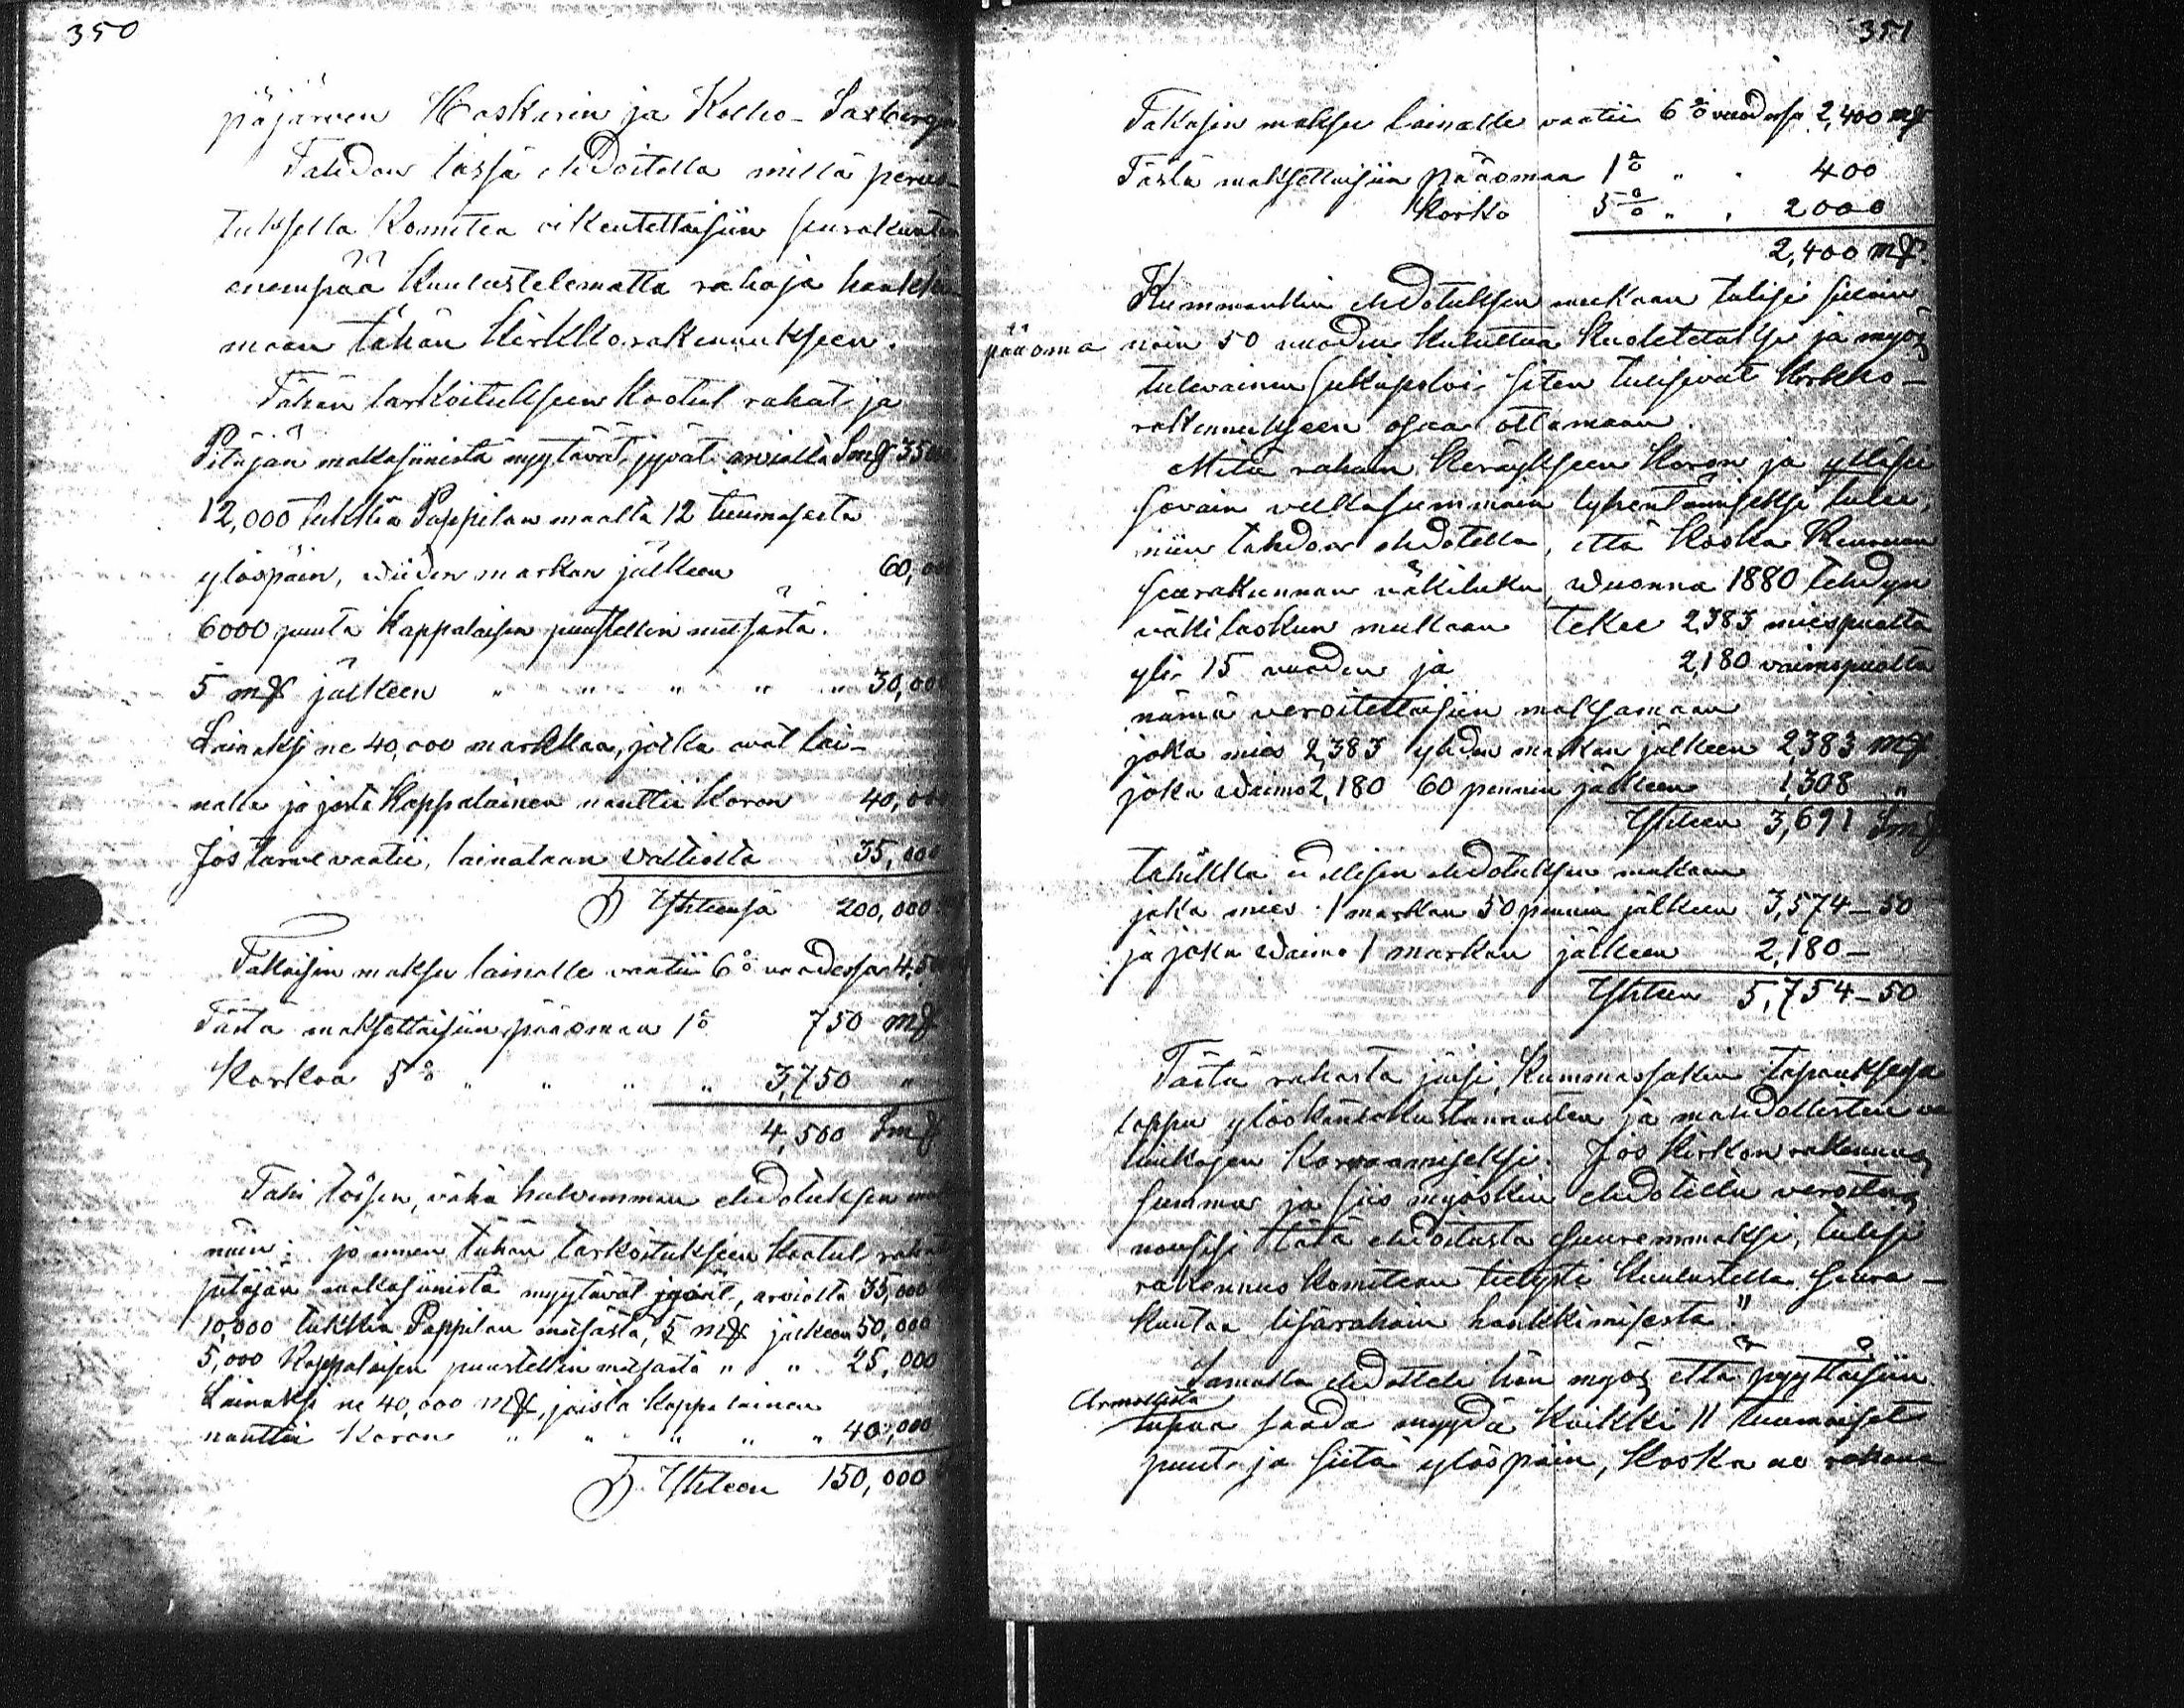 350
päjärven Kaskisen ja Kolho-Saxberg
Tahdon tässä ehdoitella millä perus-
tuksella Komitea oikeutettaisiin seurakuntaa
enempää kuulustelematta rahoja hankki-
maan tähän kirkkorakennukseen.
Tähän tarkoitukseen kootut rahat ja
Pitäjän makasiinista myytävät jyvät arviolta Smf 35000
12,000 tukkia Pappilan maalta 12 tuumasesta
ylöspäin, viiden markan jälkeen 60,000
6000 puuta Kappalaisen puustellin metsästä.
5 mf jälkeen " " " " " 30,000
Lainaksi ne 40,000 markkaa, jotka ovat lai-
nalla ja josta Kappalainen nauttii koron 40,000
Jos tarve vaatii, lainataan valtiolta 35,000
Yhteensä 200,000
Takaisin maksu lainalle vaatii 6% vuodessa 4,500
Tästä maksettaisiin pääomaa 1% 750 mf
Korkoa 5% " " " " 3,750 "
4,500 Smf
Tahi toisen, vähä halvemman ehdotuksen
näin: jo ennen tähän tarkoitukseen kootut rahat
pitäjän makasiinista myytävät jyvät, arviolta 35,000
10,000 tukkia Pappilan metsästä, 5 mf jälkeen 50,000
5,000 Kappalaisen puustellin metsästä " " 25,000
Lainaksi ne 40,000 mf, joista kappalainen
nauttii Koron " " " " " 40,000
Yhteen 150,000
351
Takasin maksu lainalle vaatii 6% vuodessa 2,400 mf
Tästä maksettaisiin pääomaa 1% " " 400
Korko 5% " " 2000
2,400 mf.
Kummankin ehdotuksen mukaan tulisi silloin
pääoma noin 50 vuoden kuluttua kuoletetuksi ja myös
tulevainen sukupolvi siten tulisivat kirkko-
rakennukseen osaa ottamaan.
Mitä rahan keräykseen koron ja
velkasumman lyhentämiseksi tulee,
niin tahdon ehdotella, että koska Keuruun
seurakunnan väkiluku, vuonna 1880 tehdyn
väkilaskun mukaan tekee 2,383 miespuolta
yli 15 vuoden ja 2,180 vaimopuolta
nämä veroitettaisiin maksamaan
joka mies 2,383 yhden markan jälkeen 2,383 mf
joka vaimo 2,180 60 pennin jälkeen 1,308 "
Yhteen 3,691 Smf
tahikka edellisen ehdotuksen mukaan
joka mies 1 markan 50 pennin jälkeen 3,574–50
ja joka vaimo 1 markan jälkeen 2,180–
Yhteen 5,754–50
Tästä rahasta jäisi kummassakin tapauksessa
loppu ylöskantokustannusten ja mahdollisten
korvaamiseksi. Jos kirkon rakennus
summa ja siis myöskin ehdoteltu veroitus
nousisi tätä ehdoitusta suuremmaksi, tulisi
rakennus komitean tietysti kuulustella seura-
kuntaa lisärahain hankkimisesta."
Samalla ehdotteli hän myös että pyyttäisiin
Armollista
lupaa saada myydä kaikki 11 tuumaiset
puut ja siitä ylöspäin, koska ne